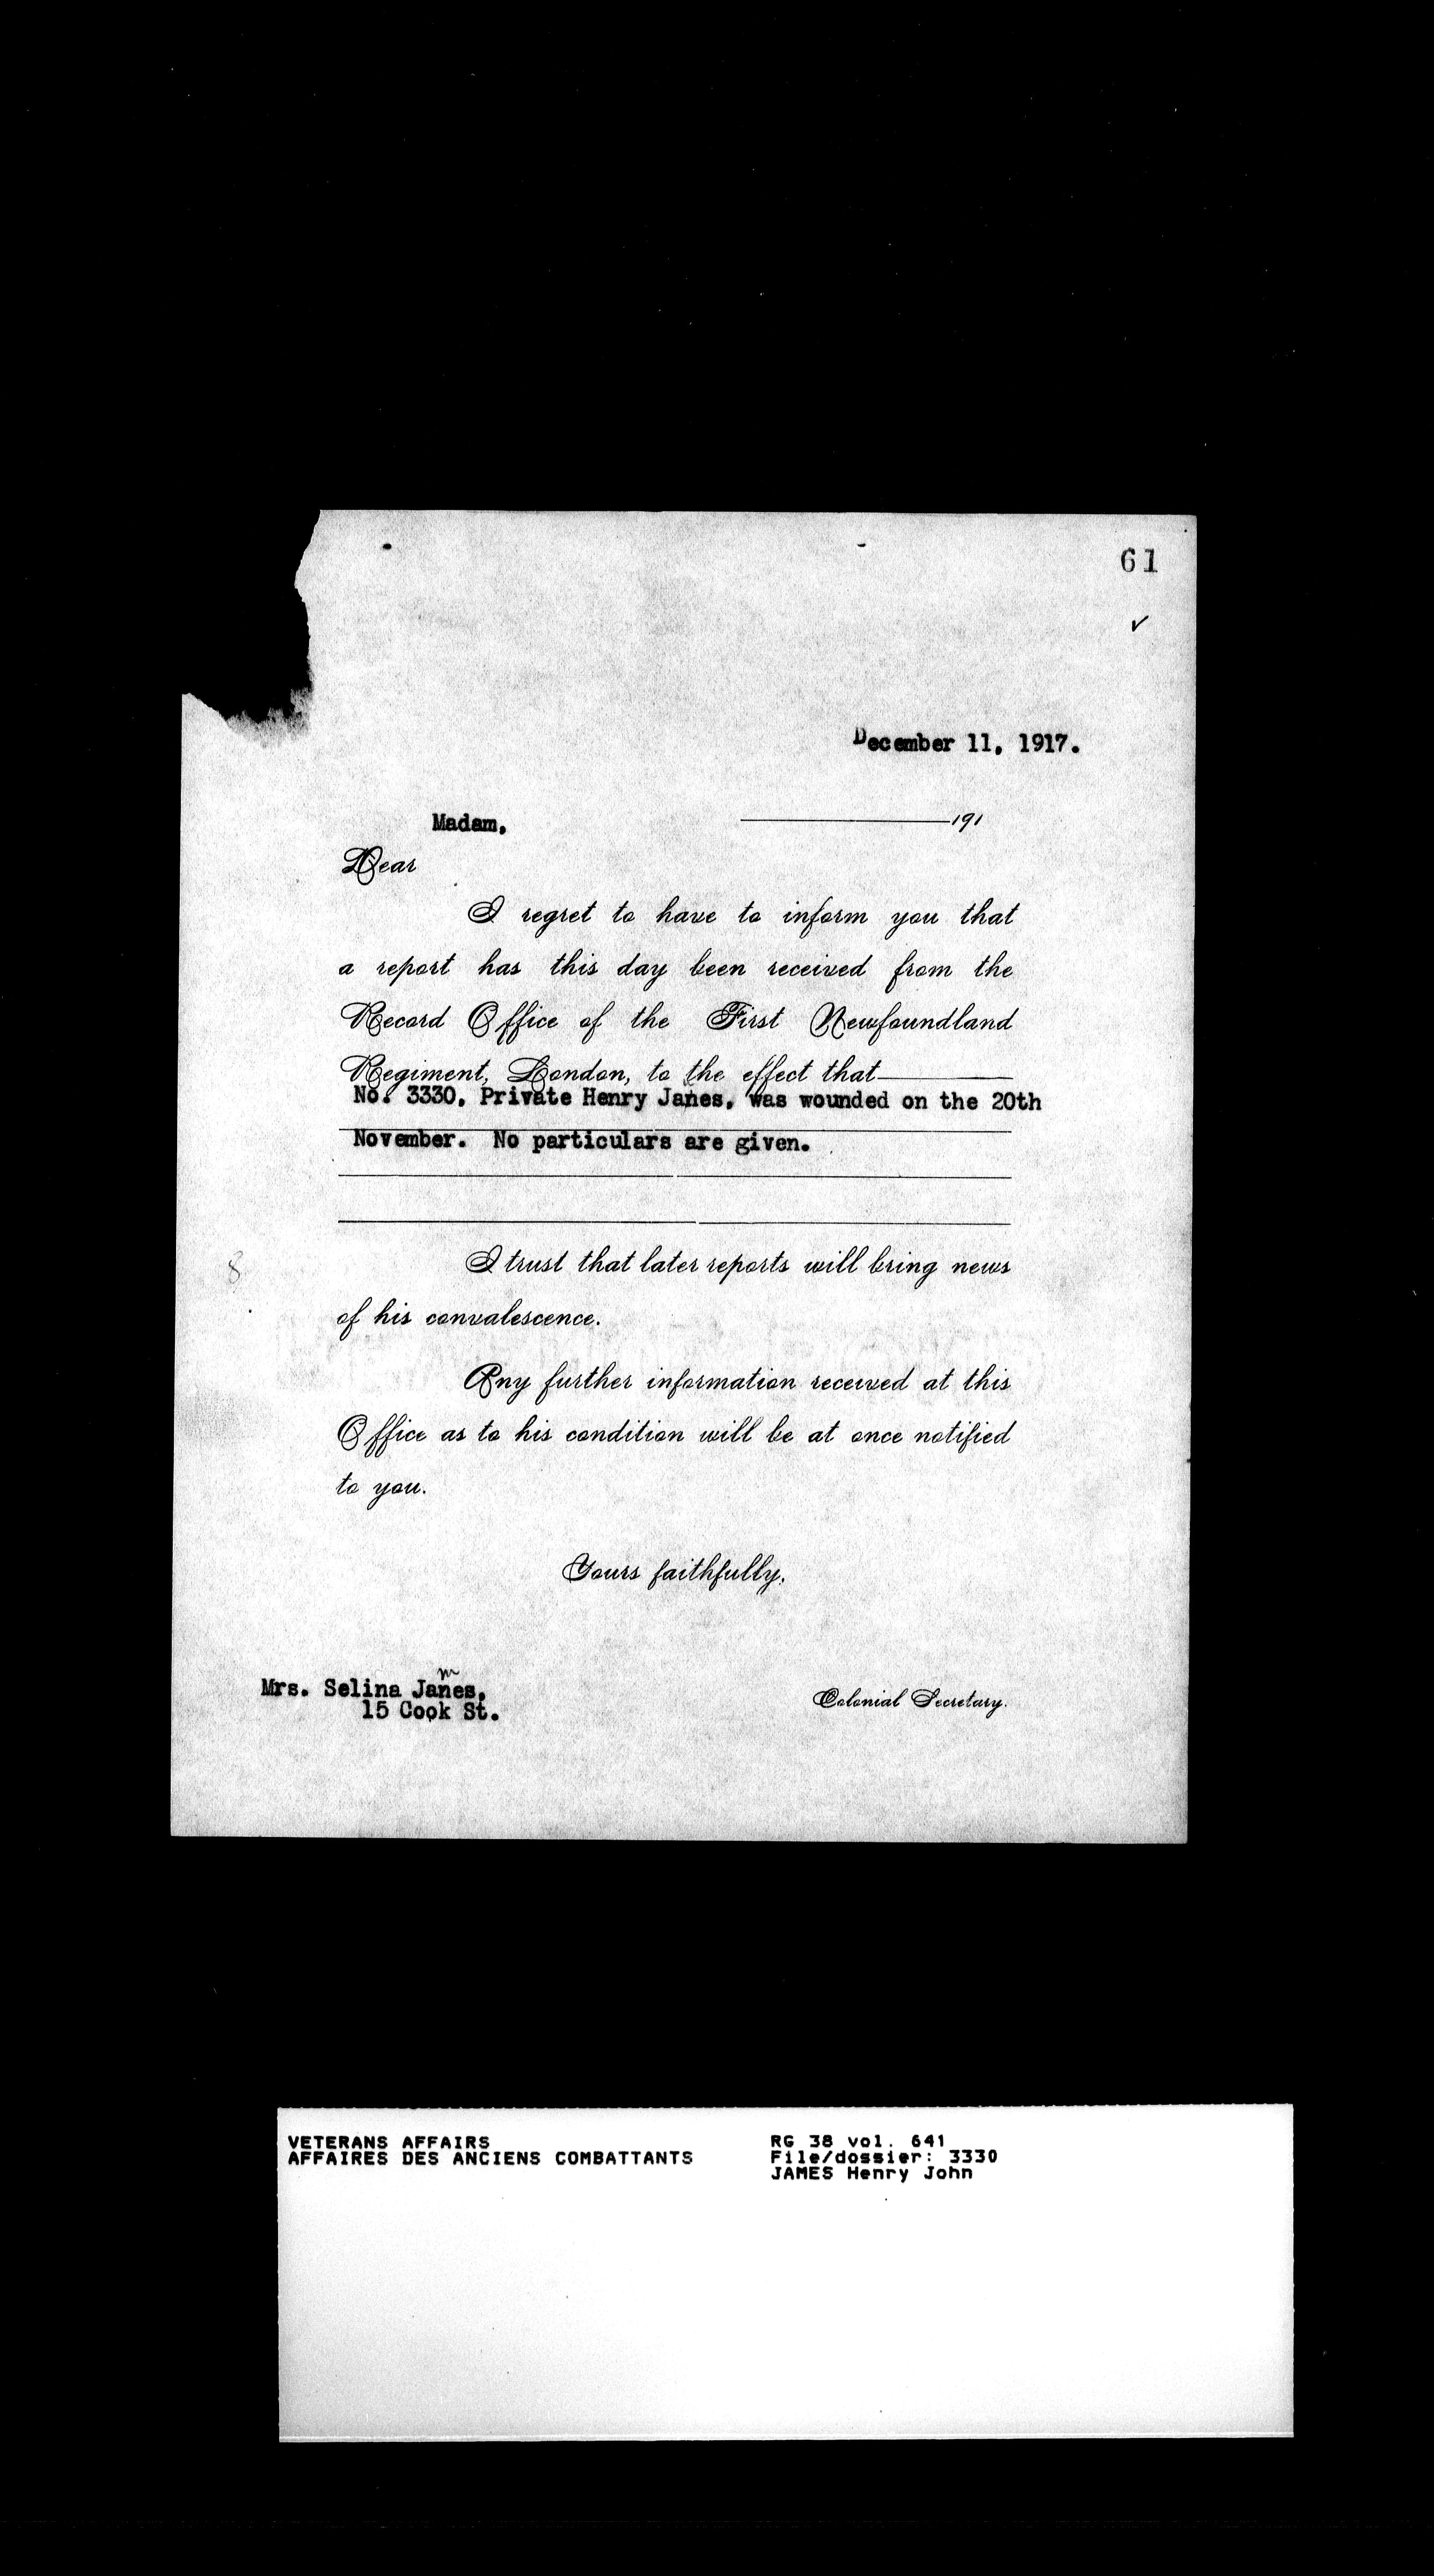 61
✓
December 11, 1917.
Madam,
191
Dear
I regret to have to inform you that
a report has this day been received from the
Record Office of the First Newfoundland
Regiment, London, to the effect that
No. 3330, Private Henry Janes, was wounded on the 20th
November. No particulars are given.
I trust that later reports will bring news
8
of his convalescence.
Any further information received at this
Office as to his condition will be at once notified
to you.
Yours faithfully,
m
Mrs. Selina Janes,
15 Cook St.
Colonial Secretary.
VETERANS AFFAIRS
AFFAIRES DES ANCIENS COMBATTANTS
RG 38 vol. 641
File/dossier: 3330
JAMES Henry John